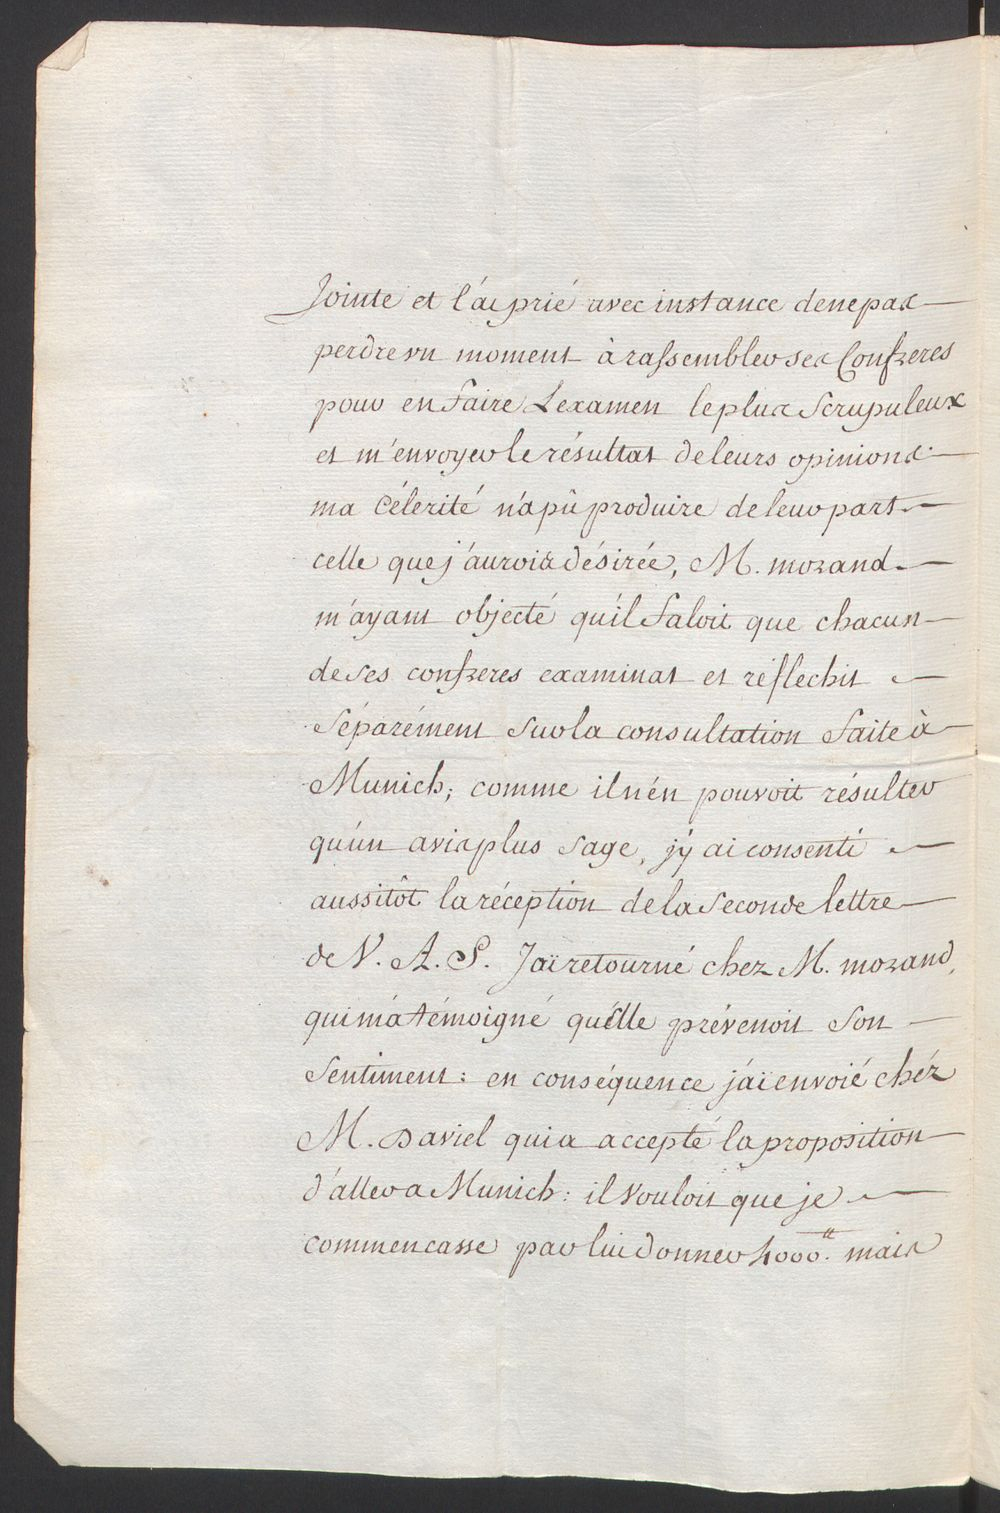 Jointe et l'ai prié avec instance de ne pas
perdre vn moment à rassembler ses Confreres
pour en faire L'examen le plus Scrupuleux
et m'envoyer le résultat de leurs opinions.
ma Célerité n'a pû produire de leur part
celle que j'aurois désirée, M. morand
m'ayant objecté qu'il faloit que chacun
de ses confreres examinat et réflechit
Séparément Sur la consultation faite à
Munich; comme il n'en pouvoit résulter
qu'un avis plus Sage, j'y ai consenti
aussitôt la réception de la Seconde lettre
de V. A. S. J'ai retourné chez M. morand,
qui m'a témoigné qu'elle prévenoit Son
Sentiment: en conséquence j'ai envoié chéz
M. Daviel qui a accepté la proposition
d'aller a Munich: il Vouloit que je
commencasse par lui donner 4000.tt mais